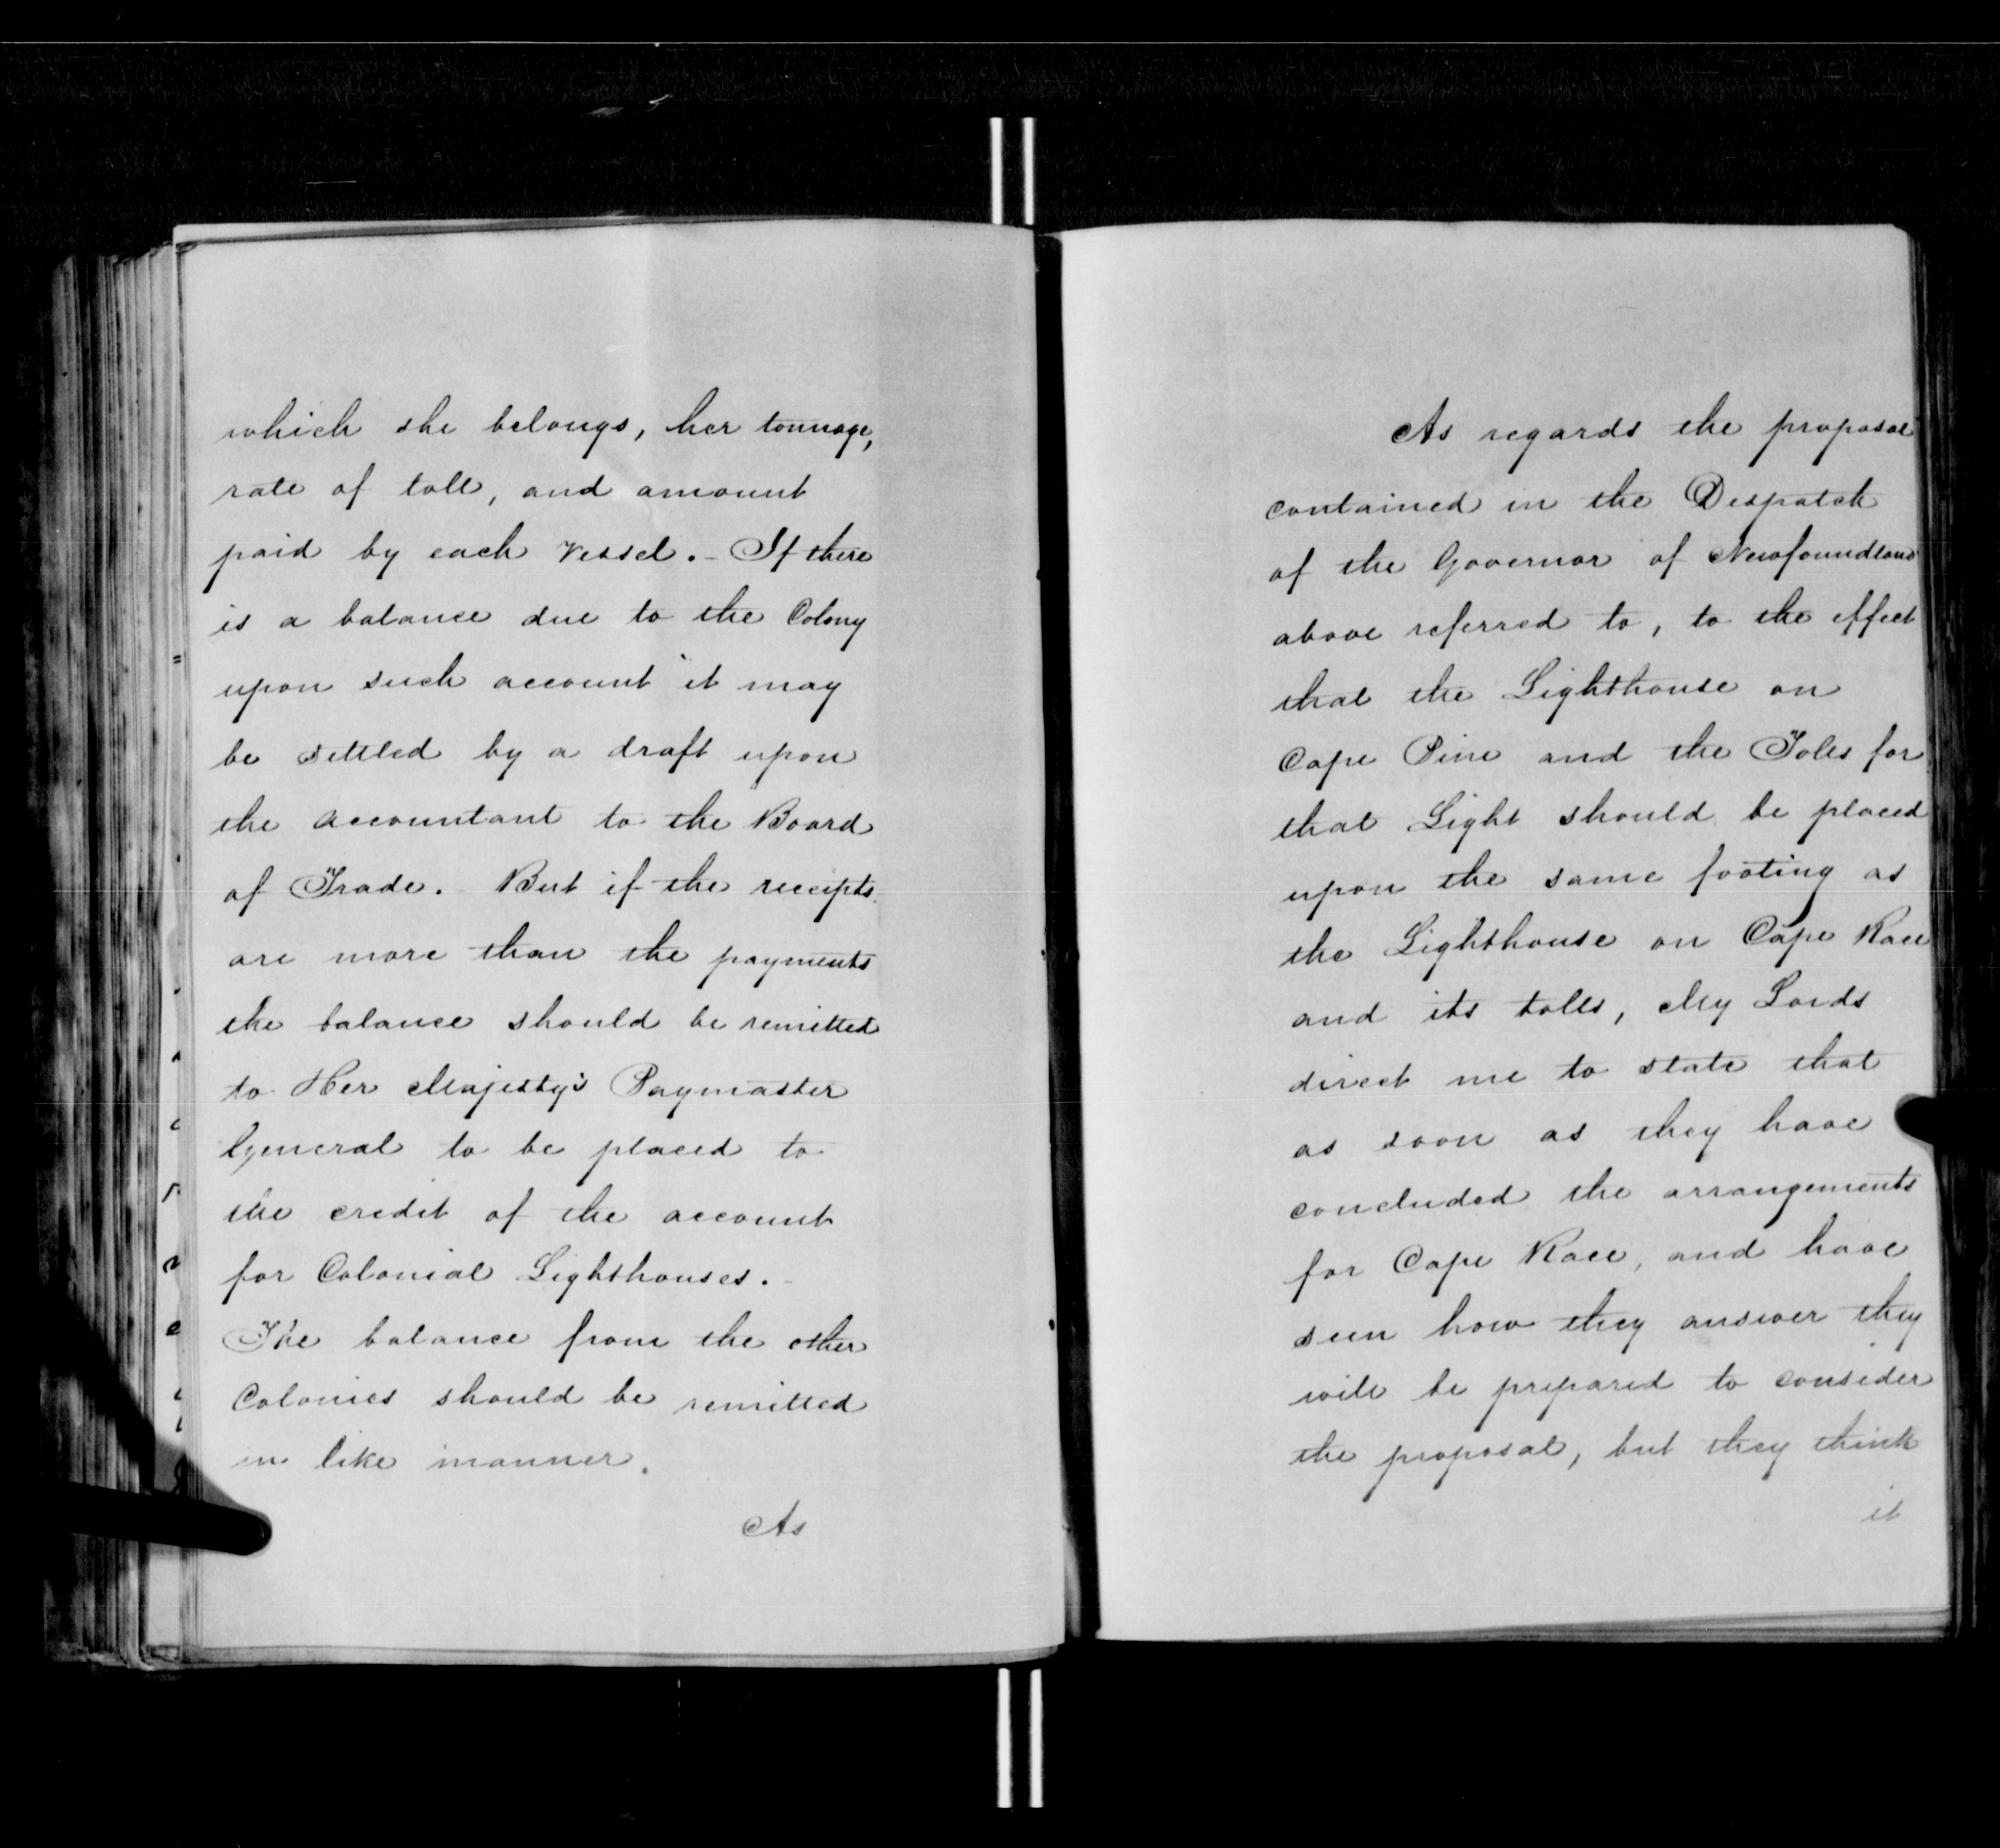 which she belongs, her tonnage,
rate of toll, and amount
paid by each Vessel. - If there
is a balance due to the Colony
upon such account it may
be settled by a draft upon
the Accountant to the Board
of Trade. - But if the receipts
are more than the payments
the balance should be remitted
to Her Majesty's Paymaster
General to be placed to
the credit of the account
for Colonial Lighthouses. -
The balance from the other
Colonies should be remitted
in like manner.
As
As regards the proposal
contained in the Despatch
of the Governor of Newfoundland
above referred to, to the effect
that the Lighthouse on
Cape Pine and the Tolls for
that Light should be placed
upon the same footing as
the Lighthouse on Cape Race
and its tolls, My Lords
direct me to state that
as soon as they have
concluded the arrangements
for Cape Race, and have
seen how they answer they
will be prepared to consider
the proposal, but they think
it